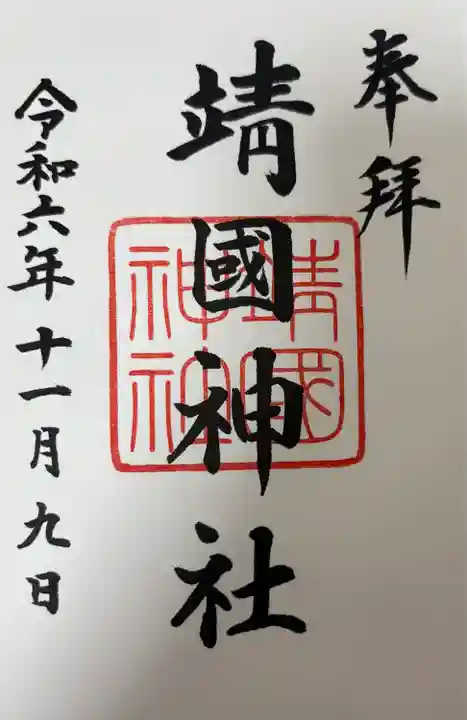 奉拜
靖國神社
靖國
神社
令和六年十一月九日